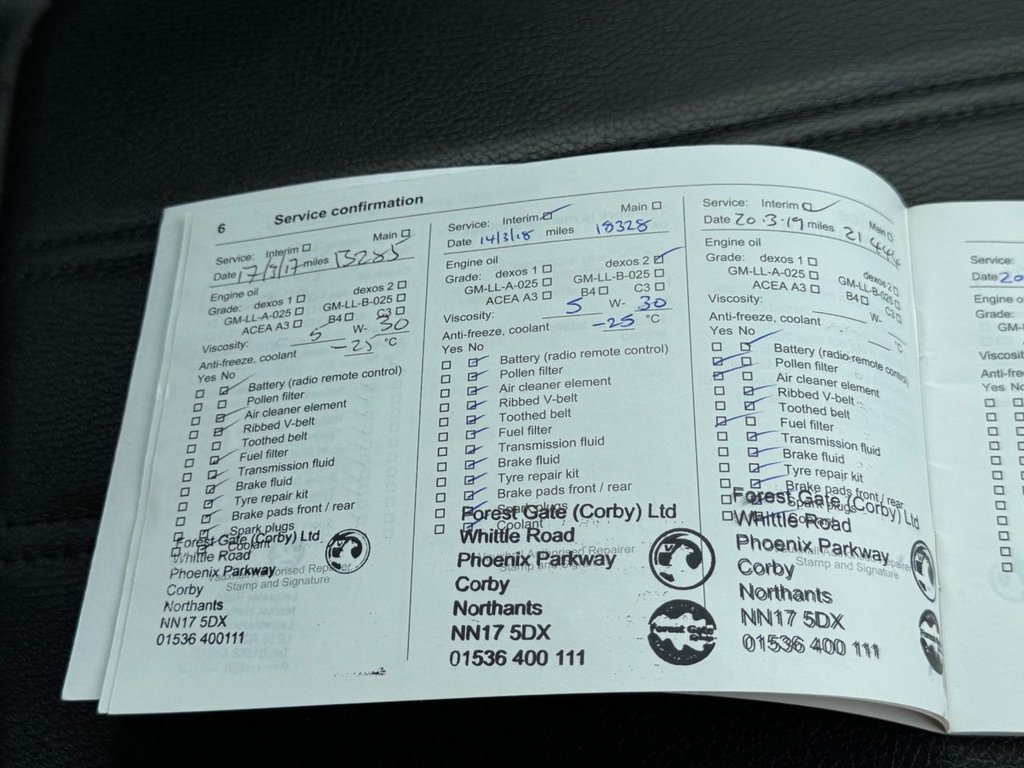 6 Service confirmation
Service: Interim
Main
Date 17/3/17 miles 13285
Engine oil
Grade: dexos 1
dexos 2
GM-LL-A-025
GM-LL-B-025
ACEA A3
B4
C3
Viscosity: 5 W- 30
Anti-freeze, coolant -25 °C
Yes No
Battery (radio remote control)
Pollen filter
Air cleaner element
Ribbed V-belt
Toothed belt
Fuel filter
Transmission fluid
Brake fluid
Tyre repair kit
Brake pads front / rear
Spark plugs
Coolant
Forest Gate (Corby) Ltd
Whittle Road
Phoenix Parkway
Vauxhall Authorised Repairer
Stamp and Signature
Corby
Northants
NN17 5DX
01536 400111
Service: Interim
Main
Date 14/3/18 miles 18328
Engine oil
Grade: dexos 1
dexos 2
GM-LL-A-025
GM-LL-B-025
ACEA A3
B4
C3
Viscosity: 5 W- 30
Anti-freeze, coolant -25 °C
Yes No
Battery (radio remote control)
Pollen filter
Air cleaner element
Ribbed V-belt
Toothed belt
Fuel filter
Transmission fluid
Brake fluid
Tyre repair kit
Brake pads front / rear
Spark plugs
Coolant
Forest Gate (Corby) Ltd
Whittle Road
Vauxhall Authorised Repairer
Stamp and Signature
Phoenix Parkway
Corby
Northants
NN17 5DX
01536 400 111
Forest Gate
Service: Interim
Main
Date 20.3.19 miles 21444
Engine oil
Grade: dexos 1
dexos 2
GM-LL-A-025
GM-LL-B-025
ACEA A3
B4
C3
Viscosity: W-
Anti-freeze, coolant °C
Yes No
Battery (radio remote control)
Pollen filter
Air cleaner element
Ribbed V-belt
Toothed belt
Fuel filter
Transmission fluid
Brake fluid
Tyre repair kit
Brake pads front / rear
Spark plugs
Coolant
Forest Gate (Corby) Ltd
Whittle Road
Phoenix Parkway
Vauxhall Authorised Repairer
Stamp and Signature
Corby
Northants
NN17 5DX
01536 400 111
Service:
Date 20
Engine
Grade:
Yes No